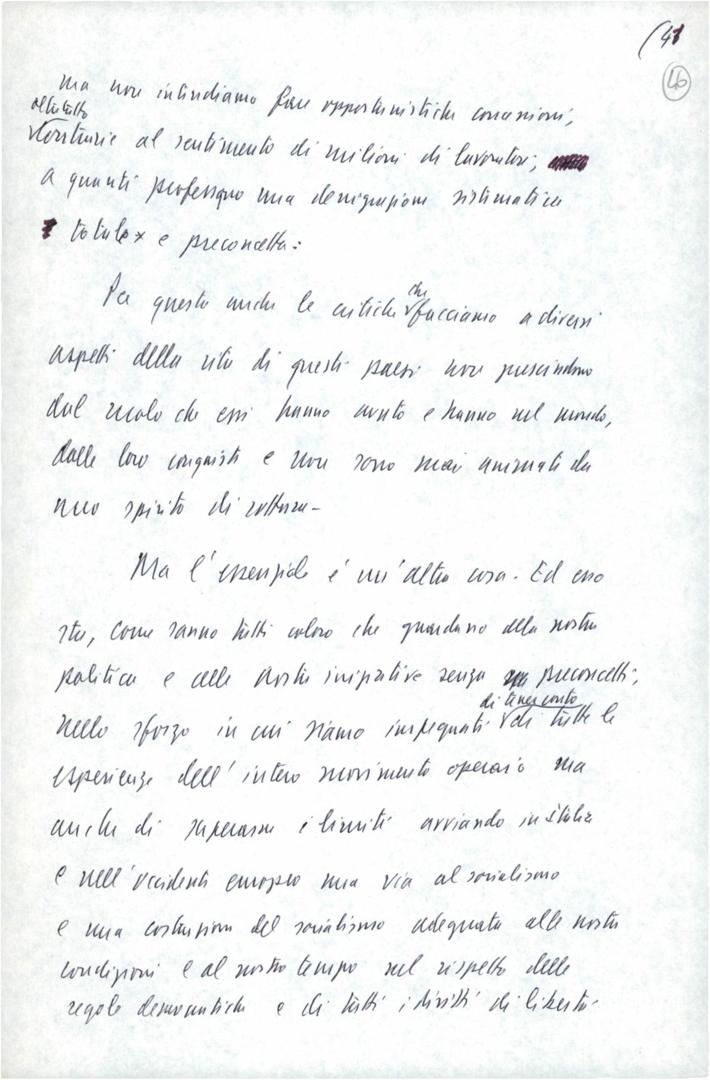 (41
46
ma non intendiamo fare opportunistiche concessioni,
oltretutto
estranee al sentimento di milioni di lavoratori,
a quanti professano una denigrazione sistematica
totale e preconcetta.
Per questo anche le critiche che facciamo a diversi
aspetti della vita di questi paesi non prescindono
dal ruolo che essi hanno avuto e hanno nel mondo,
dalle loro conquiste e non sono mai animati da
uno spirito di rottura.
Ma l'essenziale è un'altra cosa. Ed esso
sta, come sanno tutti coloro che guardano alla nostra
politica e alle nostre iniziative senza preconcetti,
di tener conto
nello sforzo in cui siamo impegnati di tutte le
esperienze dell'intero movimento operaio ma
anche di superarne i limiti avviando in Italia
e nell'occidente europeo una via al socialismo
e una costruzione del socialismo adeguata alle nostre
condizioni e al nostro tempo nel rispetto delle
regole democratiche e di tutti i diritti di libertà.